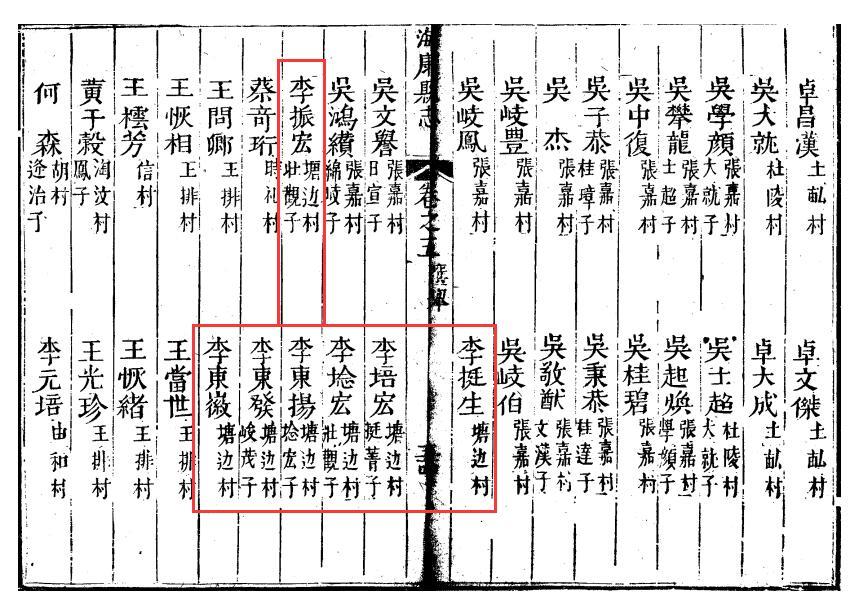 卓昌漢 土 村 卓文傑 土 村
吳大就 杜陵村 卓大成 土 村
吳學顏 張嘉村 大就子 吳士超 杜陵村 大就子
吳攀龍 張嘉村 士超子 吳起煥 張嘉村 學顏子
吳中復 張嘉村 吳桂碧 張嘉村
吳子恭 張嘉村 桂璋子 吳秉恭 張嘉村 桂達子
吳杰 張嘉村 吳敬猷 張嘉村 文漢子
吳岐豐 張嘉村 吳岐伯 張嘉村
吳岐鳳 張嘉村 李挺生 塘边村
海康縣志 卷之五 選舉
吳文譽 張嘉村 日宣子 李培宏 塘边村 挺菁子
吳鴻纘 張嘉村 綿岐子 李埝宏 塘边村 壯觀子
李振宏 塘边村 壯觀子 李東揚 塘边村 埝宏子
蔡奇珩 時礼村 李東發 塘边村 峻茂子
王問卿 王排村 李東嶶 塘边村
王恢相 王排村 王當世 王排村
王樰芳 信村 王恢緒 王排村
黃于穀 淘汶村 鳳子 王光珍 王排村
何森 胡村 逄治子 李元培 由和村